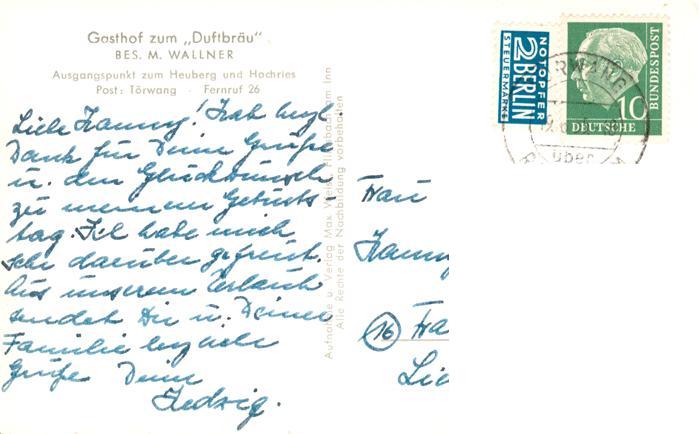 Gasthof zum „Duftbräu"
BES. M. WALLNER
Ausgangspunkt zum Heuberg und Hochries
Post: Törwang · Fernruf 26
Liebe Hanny! Hab herzl.
Dank für Deine Grüße
u. den Glückwunsch
zu meinem Geburts-
tag. Ich habe mich
sehr darüber gefreut.
Aus unserem Urlaub
sendet Dir u. Deiner
Familie herzliche
Grüße Deine
Hedwig.
Aufnahme u. Verlag Max Weiss, Flintsbach am Inn
Alle Rechte der Nachbildung vorbehalten
NOTOPFER
2 BERLIN
STEUERMARKE
BUNDESPOST
10
DEUTSCHE
TÖRWANG
über
Frau
Hanny
(16) Fra
Lie